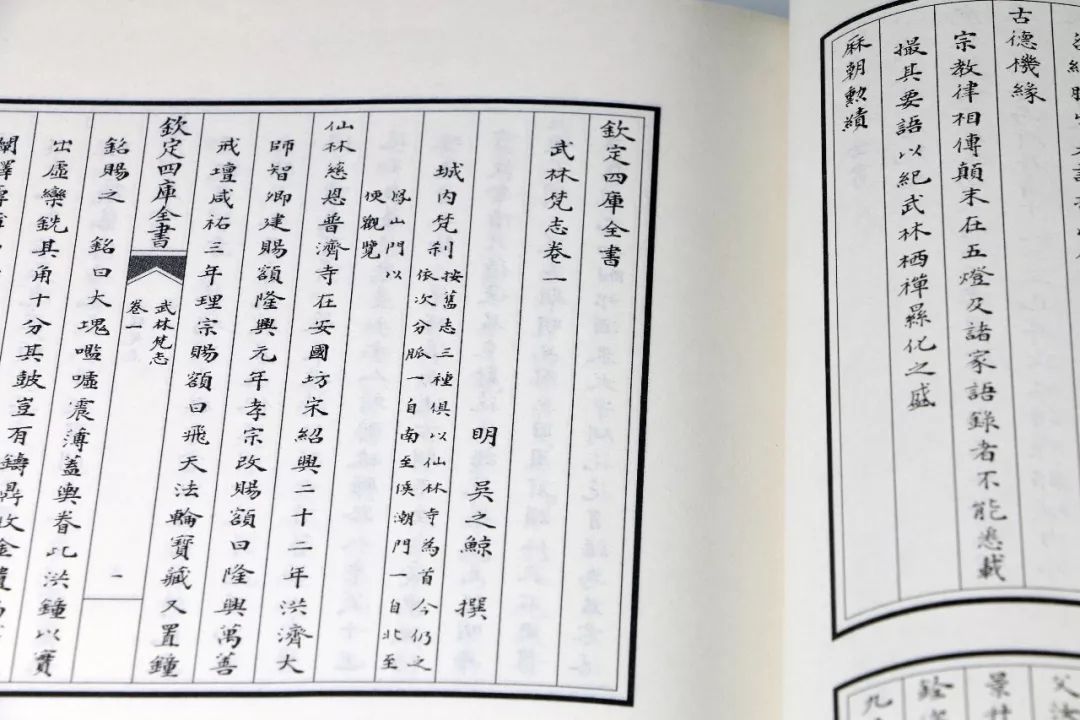 古德機緣
宗教律相傳顛末在五燈及諸家語錄者不能悉載
撮其要語以紀武林栖禪化之盛
厤朝勳績
欽定四庫全書
武林梵志卷一
明 吳之鯨 撰
城内梵刹
按舊志三種俱以仙林寺為首今仍之
依次分脈一自南至候潮門一自北至
鳳山門以
便觀覽
仙林慈恩普濟寺在安國坊宋紹興二十二年洪濟大
師智卿建賜額隆興元年孝宗改賜額曰隆興萬善
戒壇咸祐三年理宗賜額曰飛天法輪寶藏又置鐘
欽定四庫全書
武林梵志
卷一
一
銘賜之 銘曰大塊噫嘘震薄蓋輿眷此洪鐘以實
出虛欒銑其角十分其鼓豈有鑄鼎收金